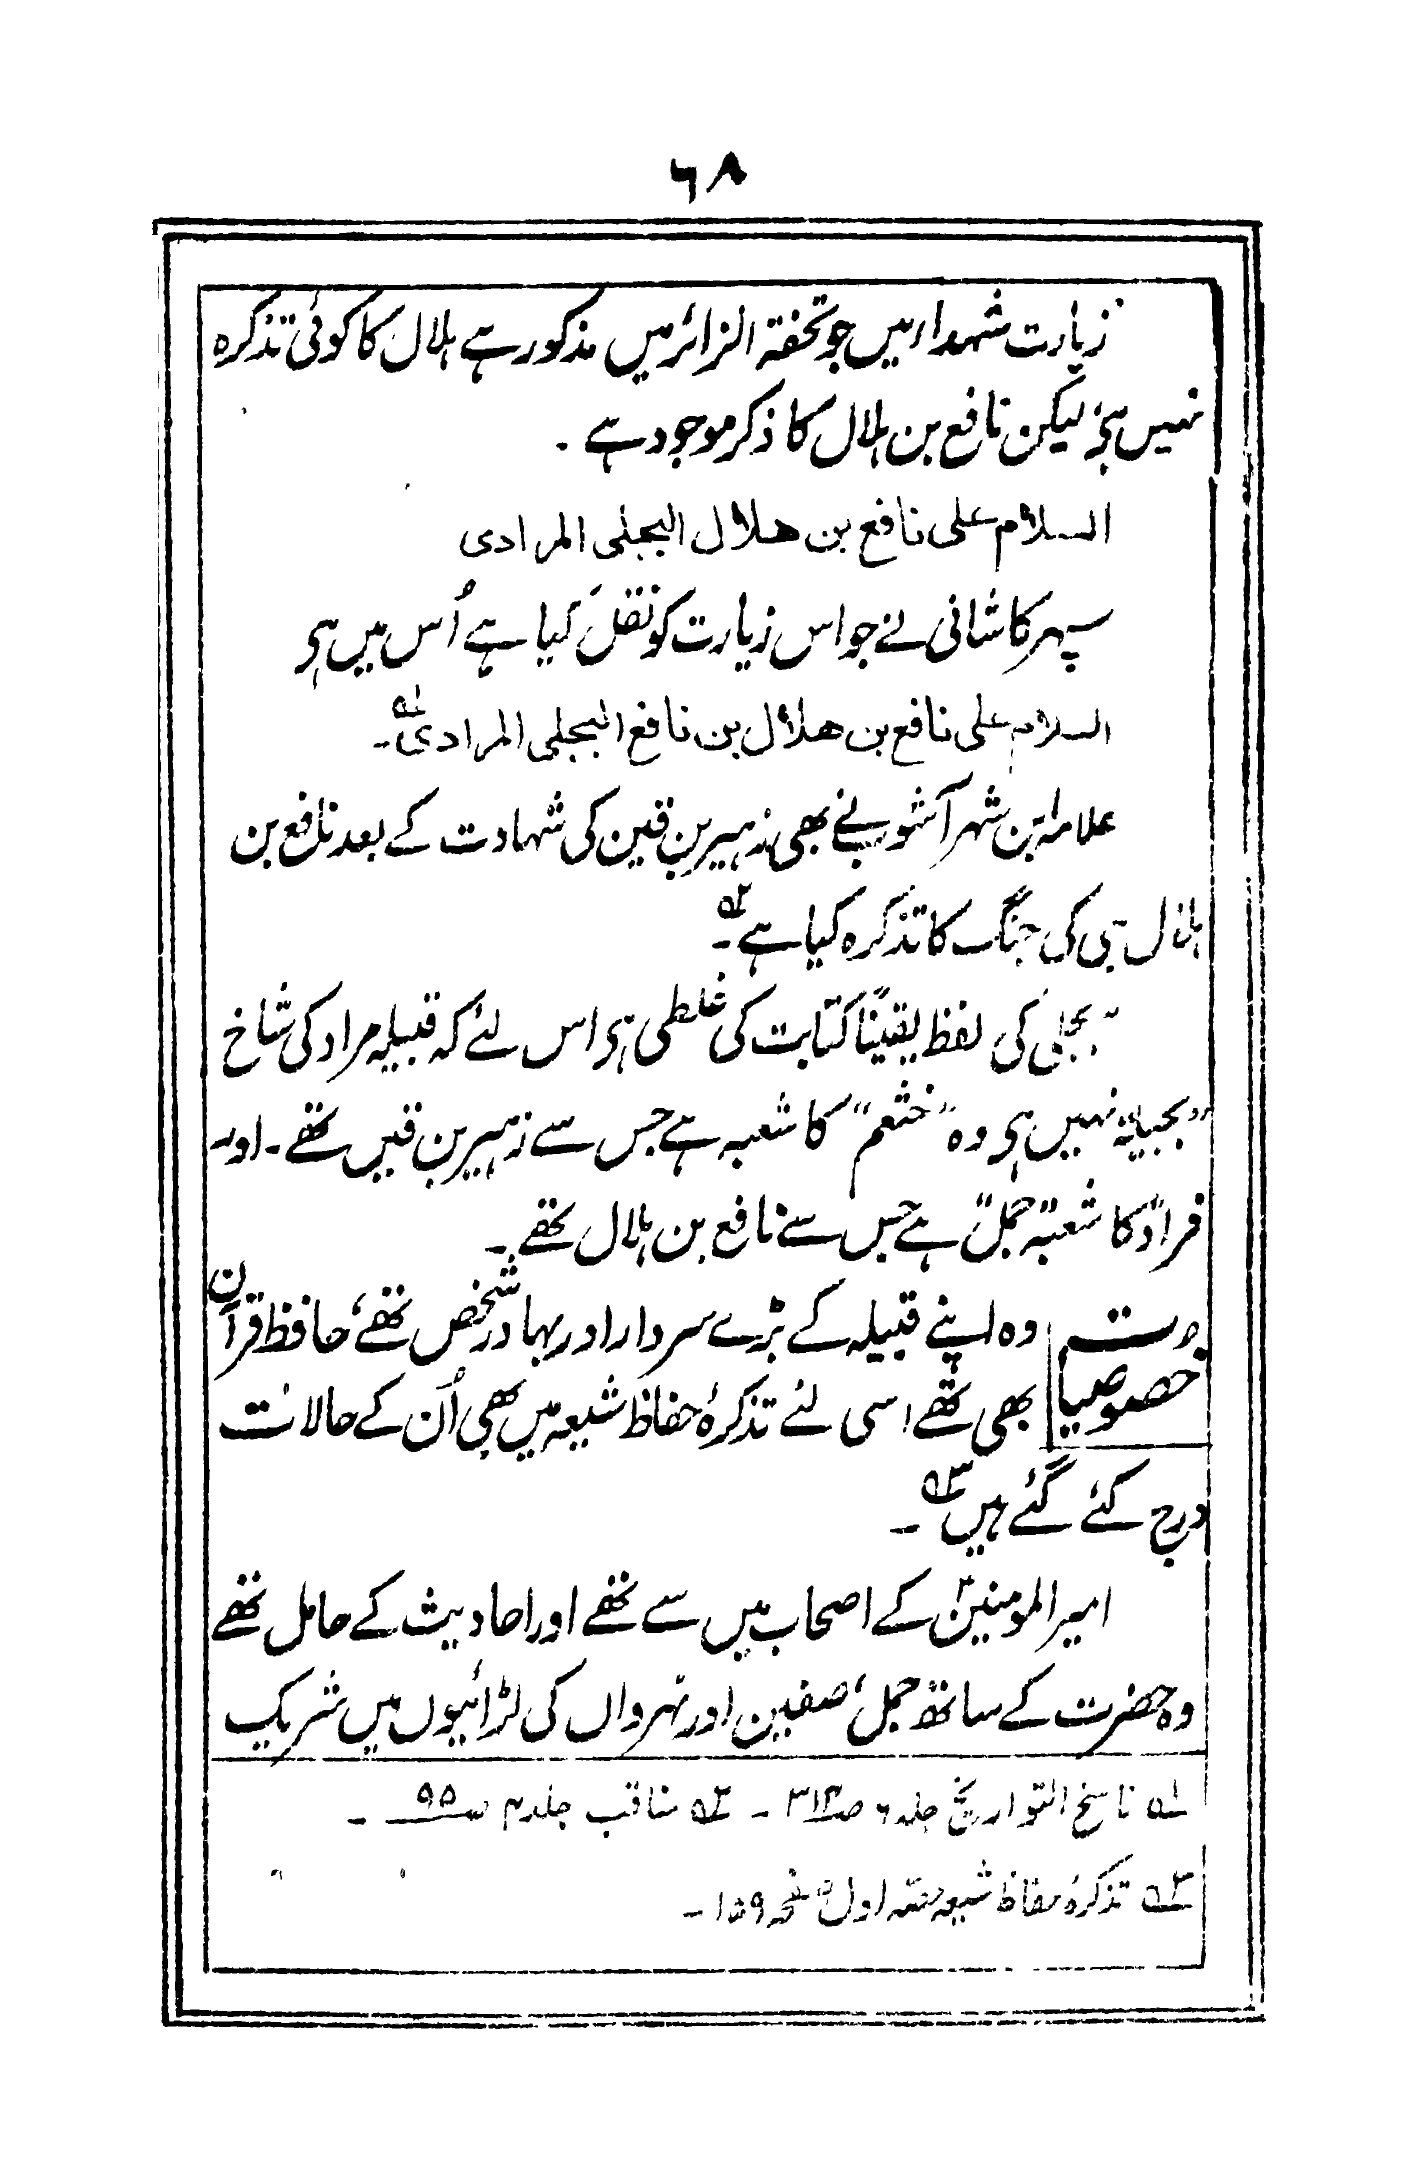 ۶۸
زیارت شہداء میں جو تحفۃ الزائر میں مذکور ہے ہلال کا کوئی تذکرہ
نہیں ہے، لیکن نافع بن ہلال کا ذکر موجود ہے ۔
السلام علی نافع بن ھلال البجلی المرادی
سپہر کاشانی نے جو اس زیارت کو نقل کیا ہے اُس میں ہے
السلام علی نافع بن ھلال بن نافع البجلی المرادی ؎۱ ۔
علامہ ابن شہر آشوب نے بھی زہیر بن قین کی شہادت کے بعد نافع بن
ہلال ہی کی جنگ کا تذکرہ کیا ہے ؎۲ ۔
بجلی کی لفظ یقیناً کتابت کی غلطی ہے اس لئے کہ قبیلہ مراد کی شاخ
"بجیلہ" نہیں ہے وہ "خثعم" کا شعبہ ہے جس سے زہیر بن قین تھے ۔ اور
"مراد" کا شعبہ "جمل" ہے جس سے نافع بن ہلال تھے ۔
خصوصیات
وہ اپنے قبیلہ کے بڑے سردار اور بہادر شخص تھے، حافظ قرآن
بھی تھے اسی لئے تذکرۂ حفاظ شیعہ میں بھی اُن کے حالات
درج کئے گئے ہیں ؎۳ ۔
امیر المومنینؑ کے اصحاب میں سے تھے اور احادیث کے حامل تھے
وہ حضرت کے ساتھ جمل، صفین اور نہروان کی لڑائیوں میں شریک
؎۱ ناسخ التواریخ جلد ۶ صـ۳۱۴ ۔ ؎۲ مناقب جلد ۴ صـ۹۵ ۔
؎۳ تذکرۂ حفاظ شیعہ حصہ اول صفحہ ۱۵۹ ۔